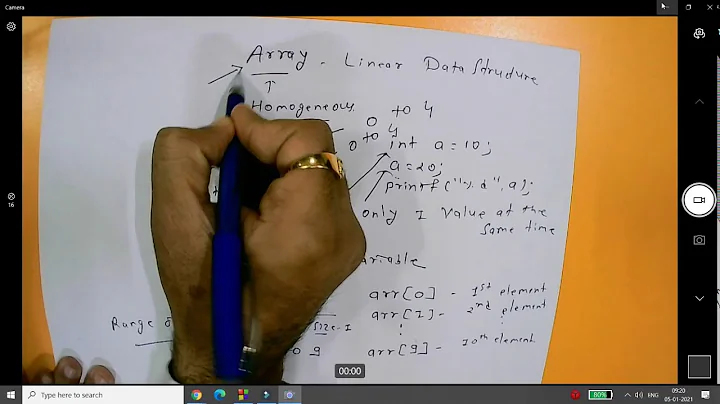 Camera
Array - Linear Data Structure
Homogeneous
0 to 4
0 to 4
int a = 10;
a = 20;
printf("%d", a);
only 1 value at the
same time
variable
arr[0] - 1st element
arr[1] - 2nd element
Range
size-1
0 9
arr[9] - 10th element
16
00:00
Type here to search
80%
ENG
09:20
05-01-2021